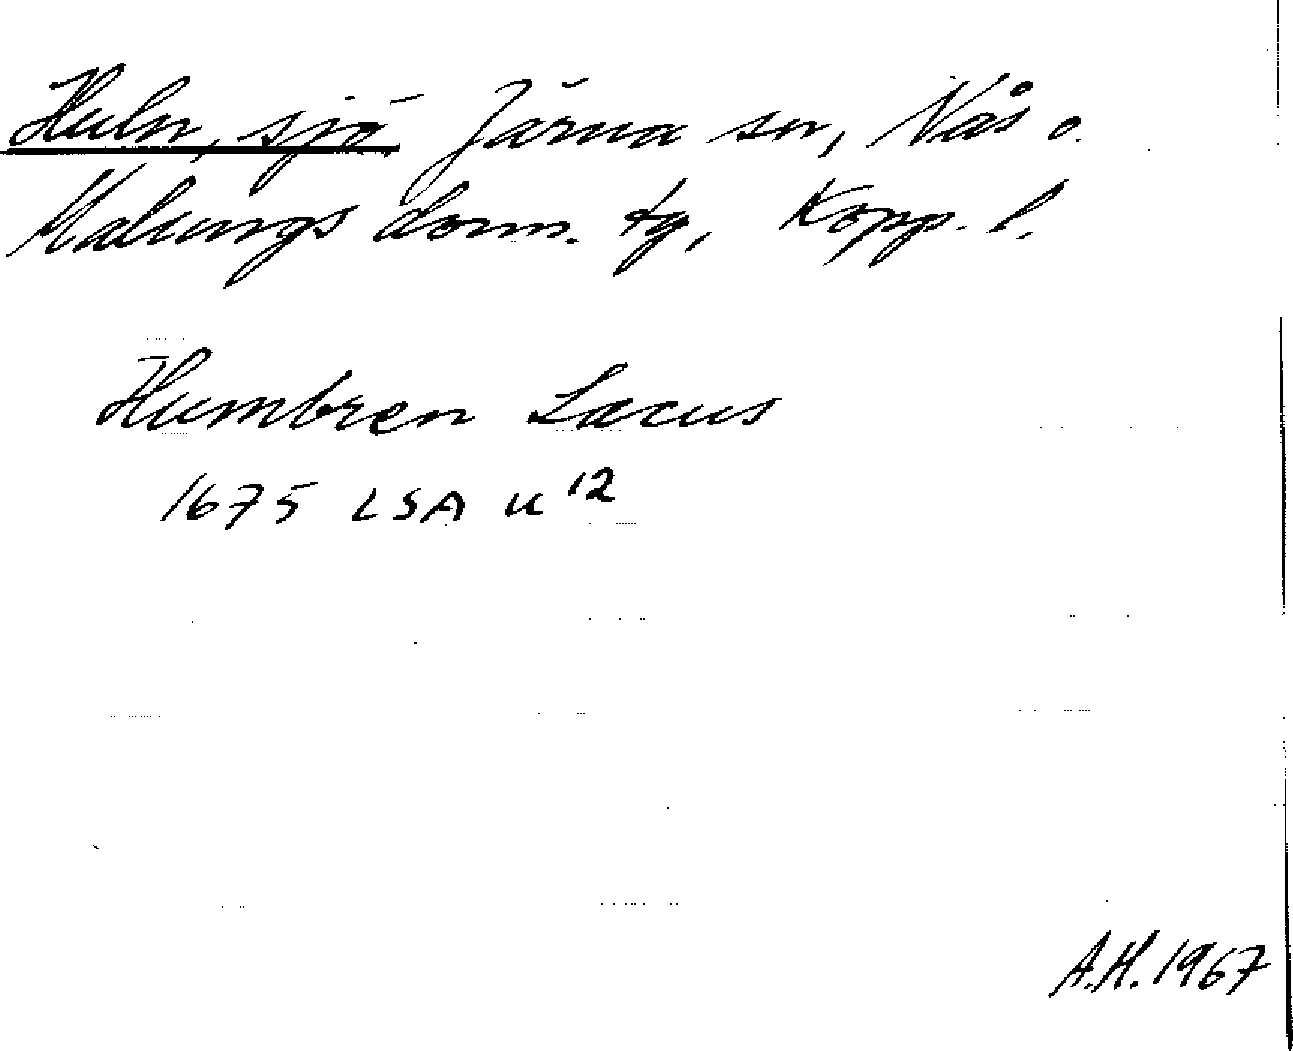 Huln, sjö Järna sn, Nås o.
Malungs doms. tg, Kopp. l.
Humbren Lacus
1675 LSA U 12
A.H. 1967